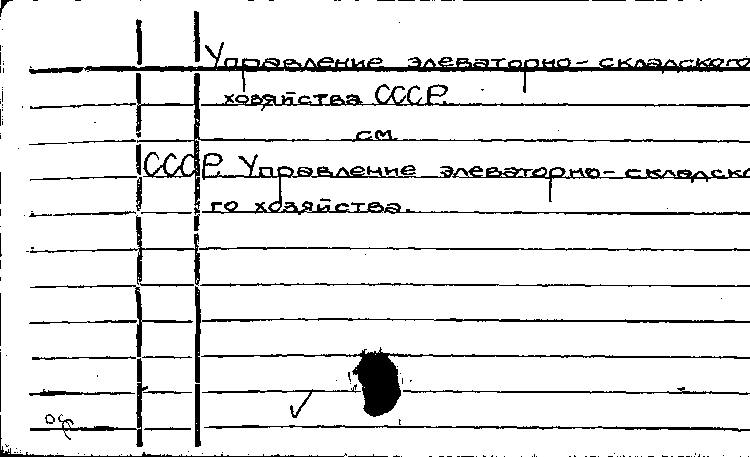 Управление элеваторно-складского
хозяйства СССР.
см
СССР. Управление элеваторно-складско
го хозяйства.